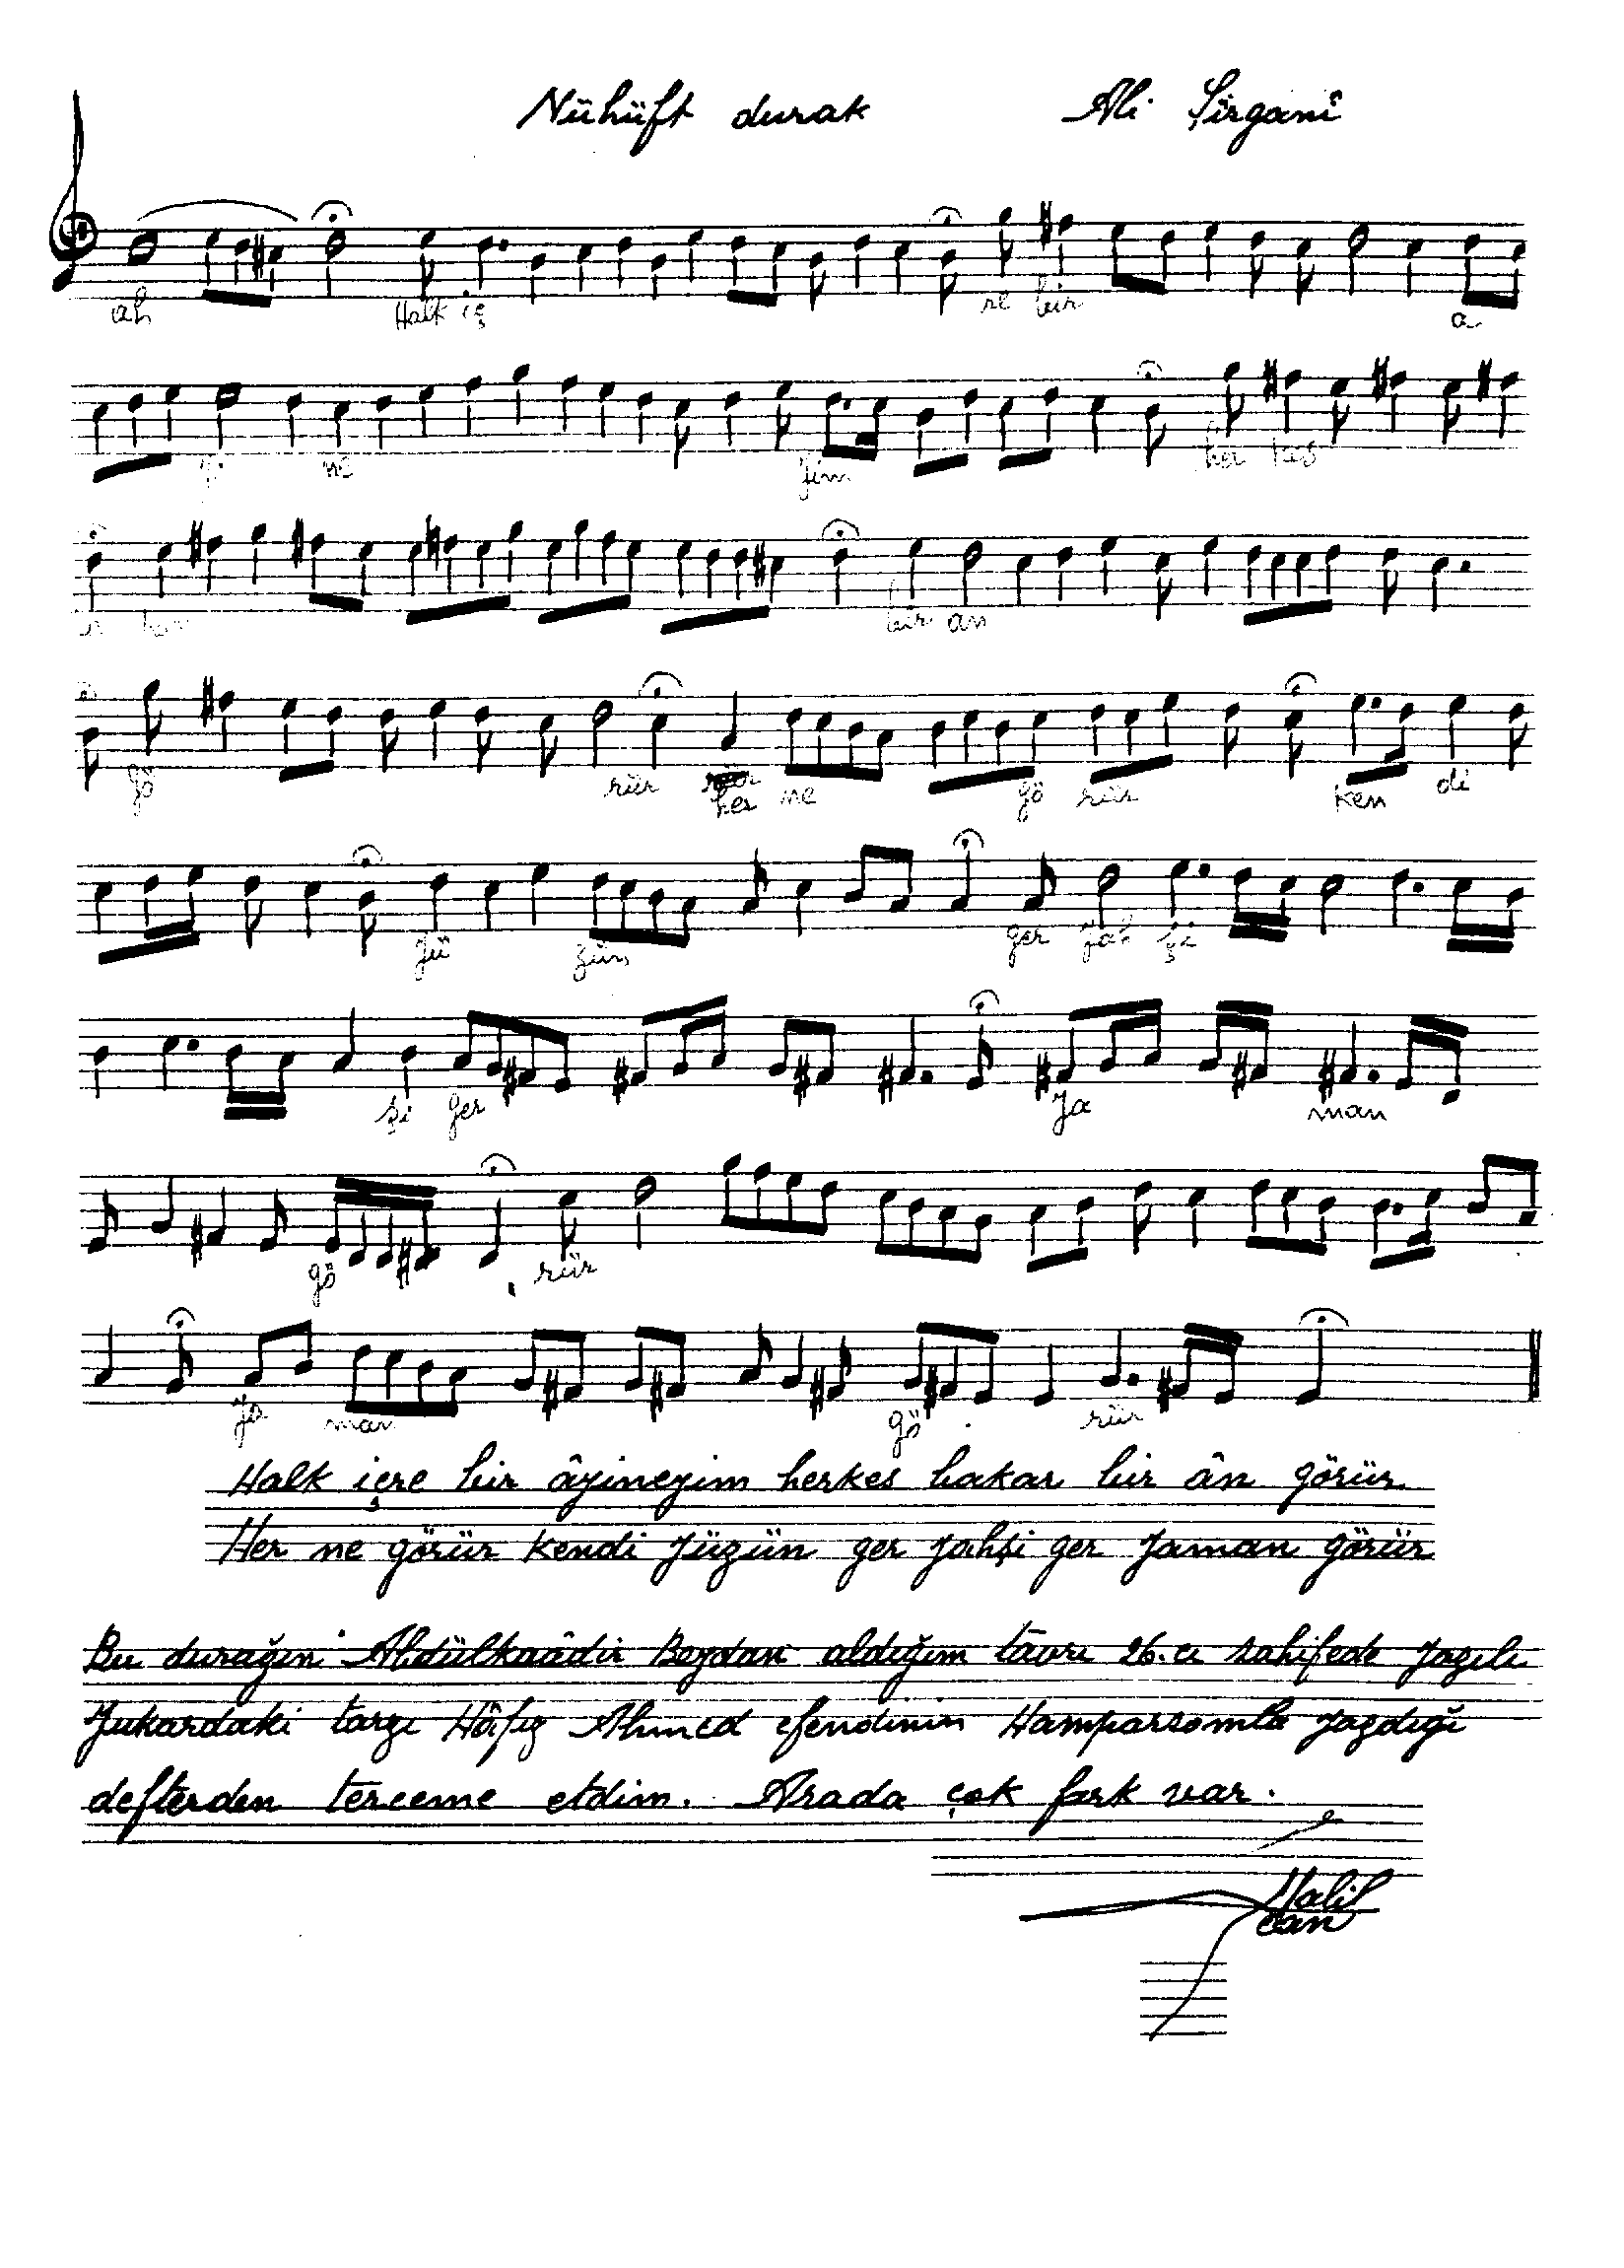 Nühüft durak Ali Şîrganî
ah Halk iç re bir a
yi ne yim her kes
bir an
gö rür her ne gö rür ken di
yü zün ger yah şi
şi ger ya man
gö rür
ya man gö rür
Halk içre bir âyineyim herkes bakar bir ân görür
Her ne görür kendi yüzün ger yahşi ger yaman görür
Bu durağın Abdülkaâdir Beydan aldığım tâvrı 26.cı sahifede yazılı
yukardaki tarzı Hâfız Ahmed efendinin Hamparsomla yazdığı
defterden terceme etdim. Arada çok fark var.
Halil
can